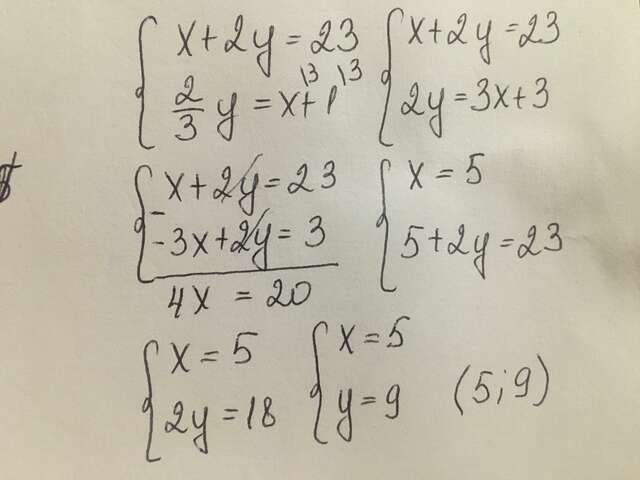 x+2y=23
2/3 y = x+1 \3 \3
x+2y=23
2y=3x+3
x+2y=23
-
-3x+2y=3
4x = 20
x = 5
5+2y=23
x = 5
2y=18
x = 5
y=9
(5;9)